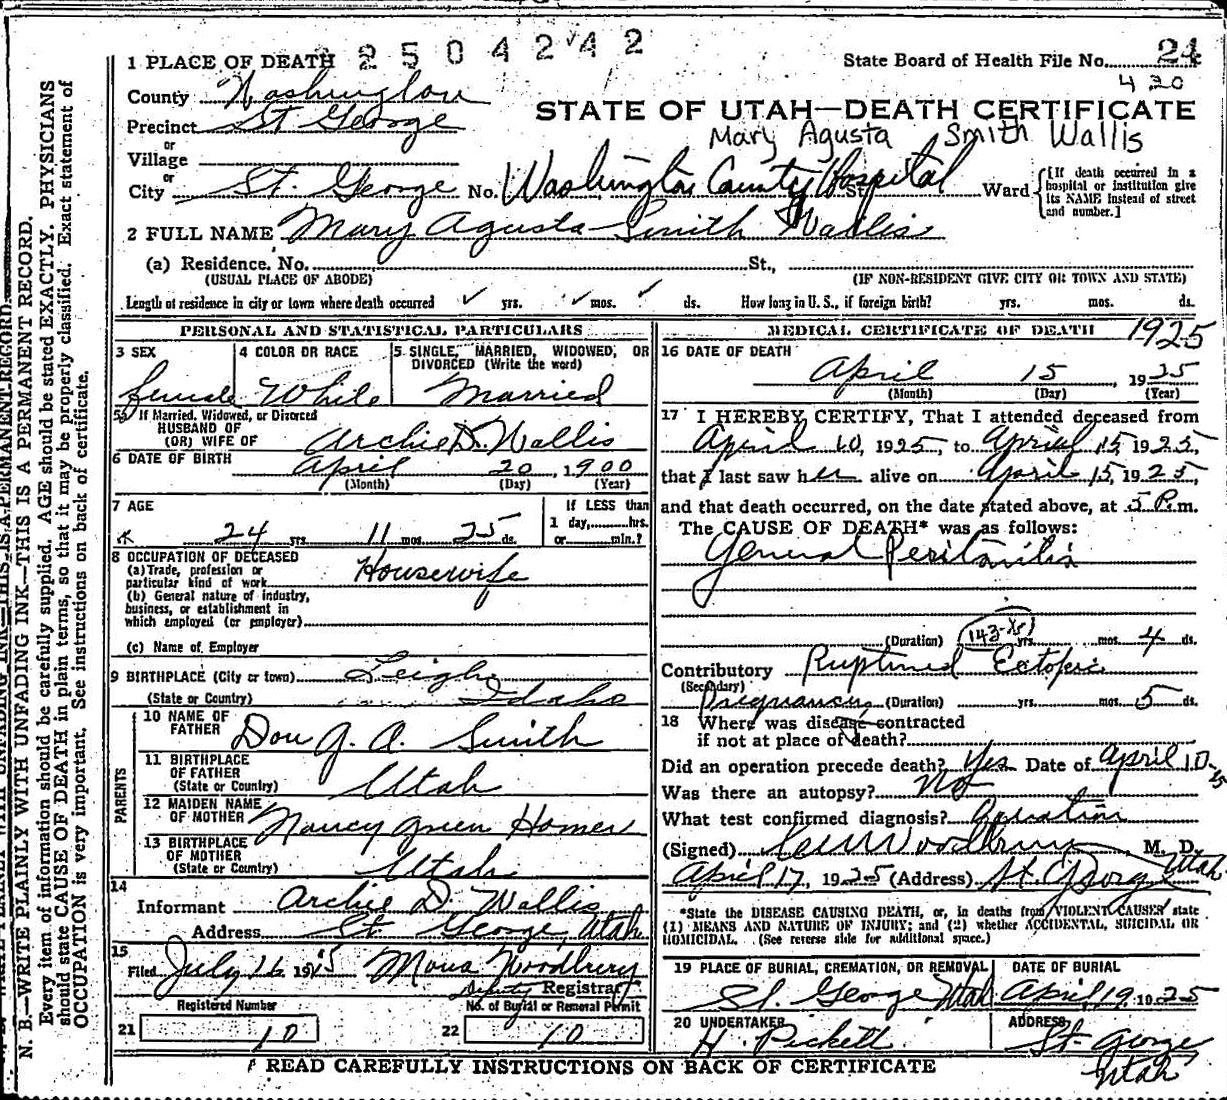 1 PLACE OF DEATH 2504242 State Board of Health File No. 24
430
County Washington
STATE OF UTAH—DEATH CERTIFICATE
Precinct St George
Mary Agusta Smith Wallis
or
Village
or
City St. George No. Washington County Hospital St. Ward
[If death occurred in a hospital or institution give its NAME instead of street and number.]
2 FULL NAME Mary Agusta Smith Wallis
(a) Residence. No. St.,
(USUAL PLACE OF ABODE) (IF NON-RESIDENT GIVE CITY OR TOWN AND STATE)
Length of residence in city or town where death occurred yrs. mos. ds. How long in U. S., if foreign birth? yrs. mos. ds.
PERSONAL AND STATISTICAL PARTICULARS
3 SEX 4 COLOR OR RACE 5 SINGLE, MARRIED, WIDOWED, OR
DIVORCED (Write the word)
female White Married
5a If Married, Widowed, or Divorced
HUSBAND OF
(OR) WIFE OF Archie D. Wallis
6 DATE OF BIRTH April 20 1900
(Month) (Day) (Year)
7 AGE If LESS than
24 yrs 11 mos. 25 ds. 1 day, hrs.
or min.?
8 OCCUPATION OF DECEASED
(a) Trade, profession or
particular kind of work Housewife
(b) General nature of industry,
business, or establishment in
which employed (or employer)
(c) Name of Employer
9 BIRTHPLACE (City or town) Leigh
(State or Country) Idaho
PARENTS
10 NAME OF
FATHER Don G. A. Smith
11 BIRTHPLACE
OF FATHER
(State or Country) Utah
12 MAIDEN NAME
OF MOTHER Nancy Green Homer
13 BIRTHPLACE
OF MOTHER
(State or Country) Utah
14
Informant Archie D. Wallis
Address St George, Utah
15
Filed July 16 1925 Mona Woodbury
Deputy Registrar
Registered Number No. of Burial or Removal Permit
21 10 22 10
MEDICAL CERTIFICATE OF DEATH 1925
16 DATE OF DEATH
April 15, 1925
(Month) (Day) (Year)
17 I HEREBY CERTIFY, That I attended deceased from
April 10, 1925, to April 15, 1925,
that I last saw her alive on April 15, 1925,
and that death occurred, on the date stated above, at 5 P. m.
The CAUSE OF DEATH* was as follows:
General Peritonitis
(Duration) 143-x yrs. mos. 4 ds.
Contributory Ruptured Ectopic
(Secondary)
Pregnancy (Duration) yrs. mos. 5 ds.
18 Where was disease contracted
if not at place of death?
Did an operation precede death? Yes Date of April 10-15
Was there an autopsy? No
What test confirmed diagnosis? Operation
(Signed) Woodbury M. D.
April 17, 1925 (Address) St George Utah
*State the DISEASE CAUSING DEATH, or, in deaths from VIOLENT CAUSES state
(1) MEANS AND NATURE OF INJURY; and (2) whether ACCIDENTAL, SUICIDAL OR
HOMICIDAL. (See reverse side for additional space.)
19 PLACE OF BURIAL, CREMATION, OR REMOVAL DATE OF BURIAL
St. George Utah April 19, 1925
20 UNDERTAKER ADDRESS
H. Pickett St. George
Utah
READ CAREFULLY INSTRUCTIONS ON BACK OF CERTIFICATE
N. B.—WRITE PLAINLY WITH UNFADING INK—THIS IS A PERMANENT RECORD.
Every item of information should be carefully supplied. AGE should be stated EXACTLY. PHYSICIANS
should state CAUSE OF DEATH in plain terms, so that it may be properly classified. Exact statement of
OCCUPATION is very important. See instructions on back of certificate.